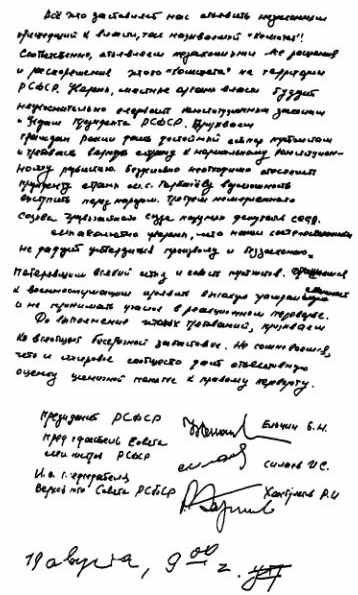 Всё это заставляет нас объявить незаконным
пришедший к власти, так называемый "комитет".
Соответственно, объявляем незаконными все решения
и распоряжения этого "комитета" на территории
РСФСР. местные органы власти будут
неукоснительно следовать конституционным законам
и Указам Президента РСФСР. Призываем
граждан России дать достойный ответ путчистам
и требовать вернуть страну к нормальному конституцион-
ному развитию. Безусловно необходимо обеспечить
президенту страны Горбачёву возможность
выступить перед народом. Требуем немедленного
созыва Чрезвычайного съезда народных депутатов СССР.
что наши соотечественники
не утвердиться произволу и беззаконию
потерявших всякий стыд и совесть путчистов. Обращаемся
к военнослужащим проявить высокую гражданственность
и не принимать участия в реакционном перевороте.
До выполнения этих требований, призываем
ко всеобщей бессрочной забастовке. Не сомневаемся,
что и мировое сообщество даст объективную
оценку циничной попытке к правому перевороту.
Президент РСФСР Ельцин Б.Н.
Председатель Совета
министров РСФСР Силаев И.С.
И.о. председателя
Верховного Совета РСФСР Хасбулатов Р.И
19 августа, 9 00 г.